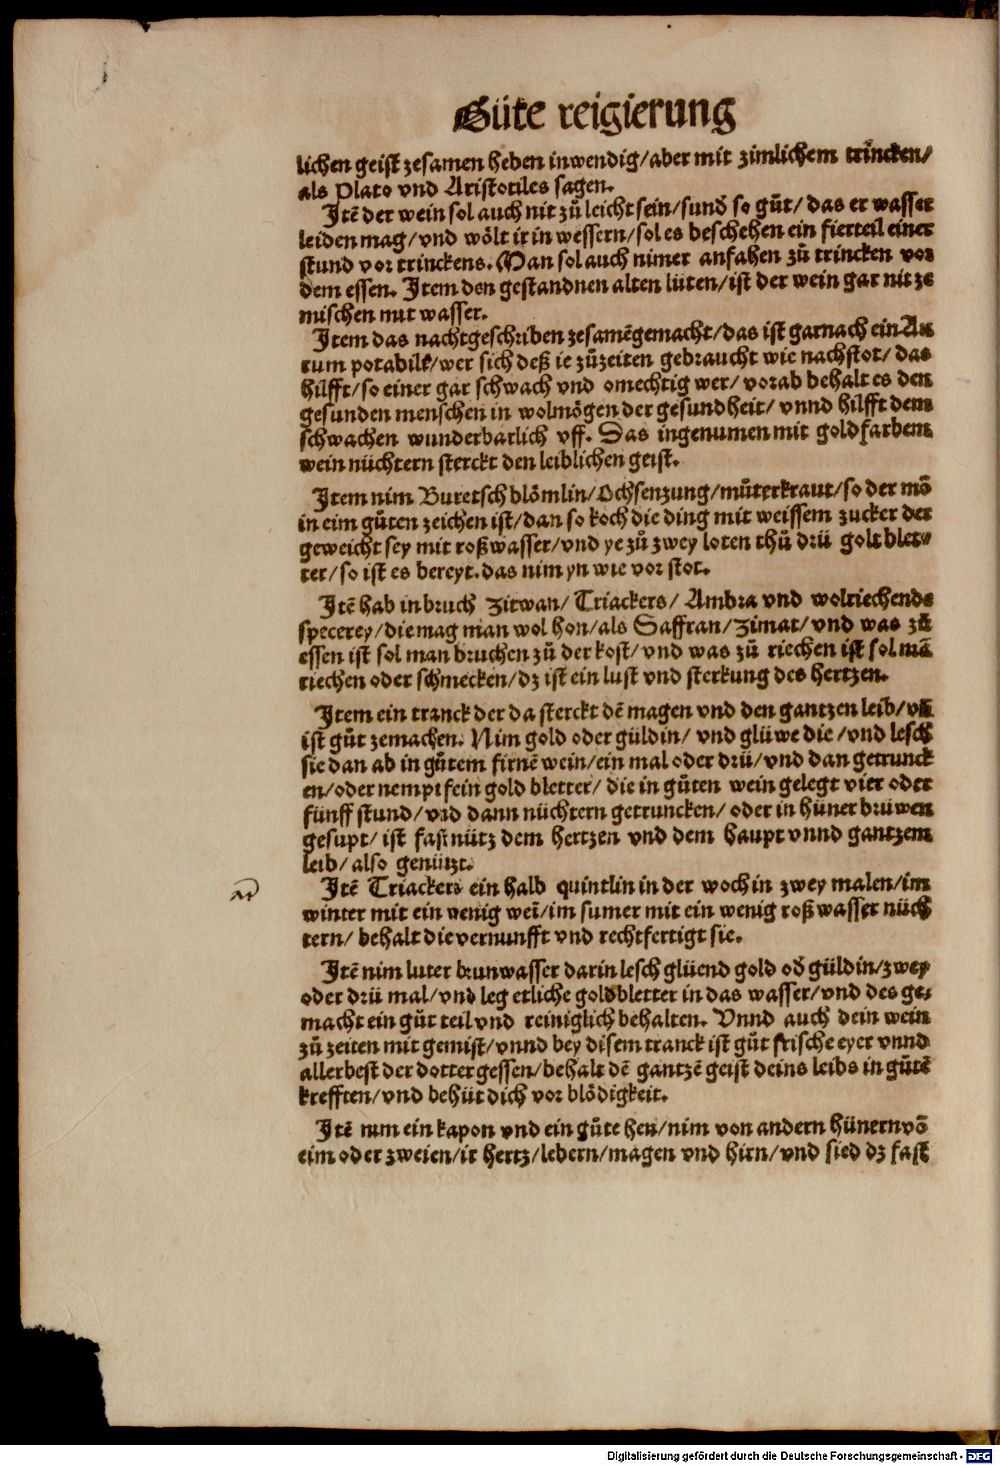 Güte reigierung
lichen geist zesamen heben inwendig/aber mit zimlichem trincken/
als Plato vnd Aristotiles sagen.
Jtē der wein sol auch nit zů leicht sein/sund̄ so gůt/das er wasser
leiden mag/vnd wölt ir in wessern/sol es beschehen ein fierteil einer
stund vor trinckens. Man sol auch nimer anfahen zů trincken vor
dem essen. Jtem den gestandnen alten lüten/ist der wein gar nit ze
mischen mit wasser.
Jtem das nachtgeschriben zesamēgemacht/das ist garnach ein Au
rum potabile/wer sich deß ie zůzeiten gebraucht wie nachstot/das
hilfft/so einer gar schwach vnd omechtig wer/vorab behalt es den
gesunden menschen in wolmögen der gesundheit/vnnd hilfft dem
schwachen wunderbarlich vff. Das ingenumen mit goldfarbem
wein nüchtern sterckt den leiblichen geist.
Jtem nim Buretsch blömlin/Ochsenzung/můterkraut/so der mō
in eim gůten zeichen ist/dan so koch die ding mit weissem zucker der
geweicht sey mit roßwasser/vnd ye zů zwey loten thů drü golt blet-
ter/so ist es bereyt.das nim yn wie vor stot.
Jtē hab in bruch Zitwan/Triackers/Ambra vnd wolriechende
specerey/die mag man wol hon/als Saffran/Zimat/vnd was zů
essen ist sol man bruchen zů der kost/vnd was zů riechen ist sol mā
riechen oder schmecken/dz ist ein lust vnd sterkung des hertzen.
Jtem ein tranck der da sterckt dē magen vnd den gantzen leib/vñ
ist gůt zemachen. Nim gold oder güldin/vnd glüwe die/vnd lesch
sie dan ab in gůtem firnē wein/ein mal oder drü/vnd dan getrunck
en/oder nempt fein gold bletter/die in gůten wein gelegt vier oder
fünff stund/vnd dann nüchtern getruncken/oder in hüner brüwen
gesupt/ist fast nütz dem hertzen vnd dem haupt vnnd gantzem
leib/also genützt.
Jtē Triackers ein halb quintlin in der woch in zwey malen/im
winter mit ein wenig wei/im sumer mit ein wenig roßwasser nüch
tern/behalt die vernunfft vnd rechtfertigt sie.
Jtē nim luter brunwasser darin lesch glüend gold od̄ güldin/zwey
oder drü mal/vnd leg etliche goldbletter in das wasser/vnd des ge-
macht ein gůt teil vnd reiniglich behalten. Vnnd auch dein wein
zů zeiten mit gemist/vnnd bey disem tranck ist gůt frische eyer vnnd
allerbest der dotter gessen/behalt dē gantzē geist deins leibs in gůtē
krefften/vnd behüt dich vor blödigkeit.
Jtē nim ein kapon vnd ein gůte hen/nim von andern hünern vō
eim oder zweien/ir hertz/lebern/magen vnd hirn/vnd sied dz fast
Digitalisierung gefördert durch die Deutsche Forschungsgemeinschaft - DFG